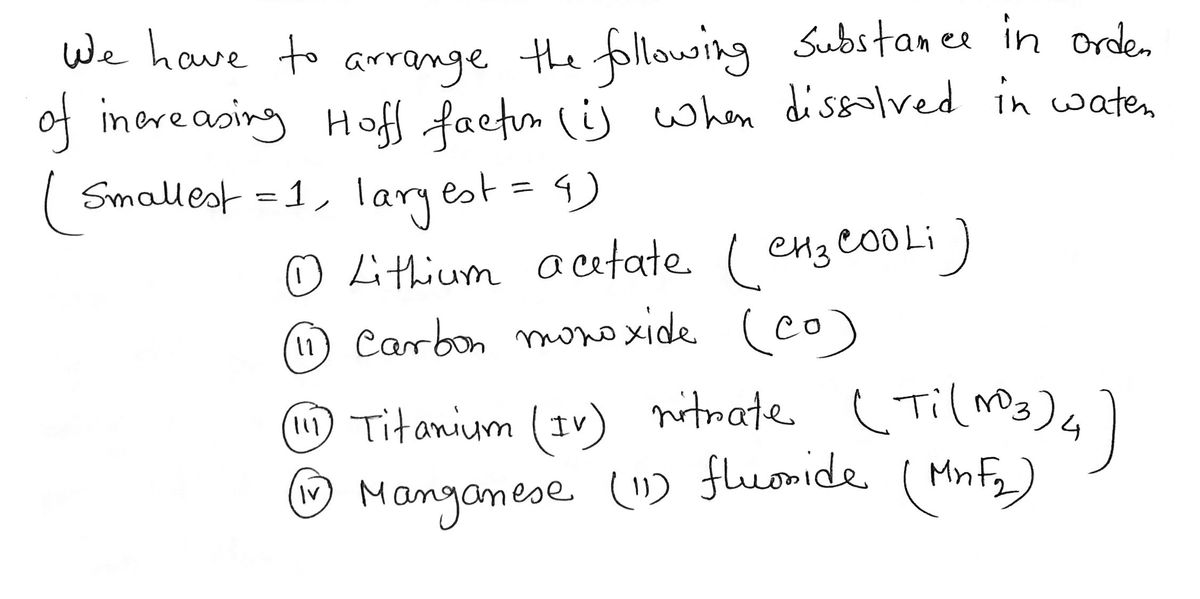 We have to arrange the following Substance in order
of increasing Hoff factor (i) when dissolved in water
( Smallest = 1, largest = 4)
(i) Lithium acetate ( CH3COOLi )
(ii) Carbon monoxide (CO)
(iii) Titanium (IV) nitrate ( Ti(NO3)4 )
(iv) Manganese (II) fluoride ( MnF2)